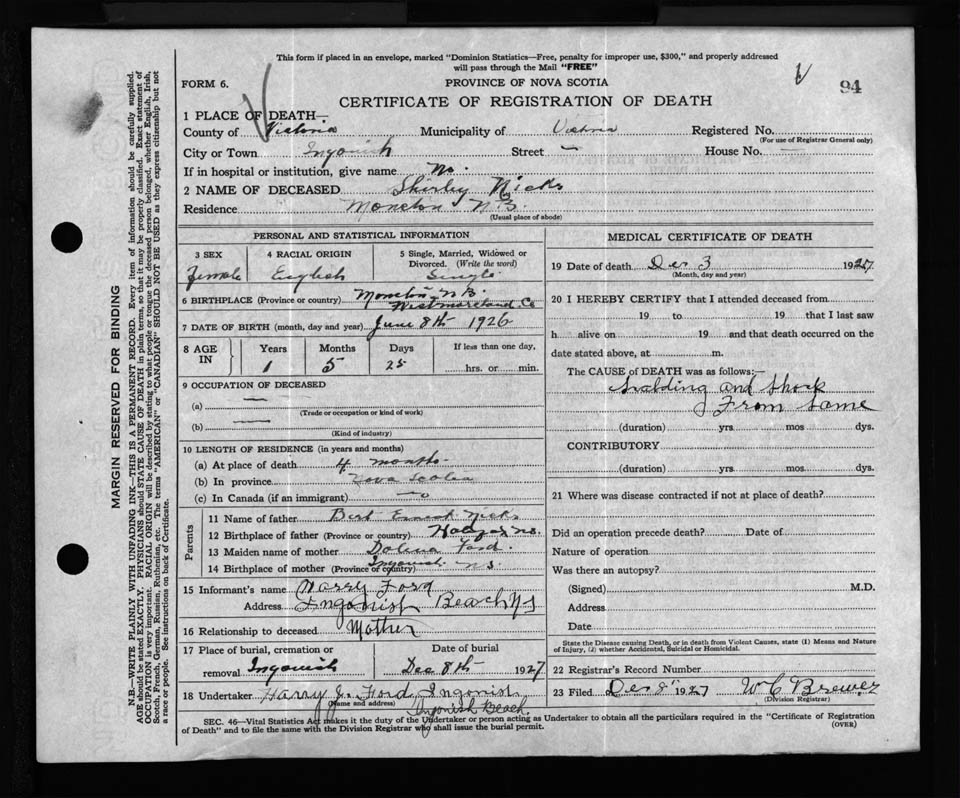 This form if placed in an envelope, marked "Dominion Statistics—Free, penalty for improper use, $300," and properly addressed
will pass through the Mail "FREE"
FORM 6.
PROVINCE OF NOVA SCOTIA
94
CERTIFICATE OF REGISTRATION OF DEATH
1 PLACE OF DEATH—
County of Victoria Municipality of Victoria Registered No.
(For use of Registrar General only)
City or Town Ingonish Street — House No. —
If in hospital or institution, give name No.
2 NAME OF DECEASED Shirley Nicks
Residence Moncton N.B.
(Usual place of abode)
PERSONAL AND STATISTICAL INFORMATION
3 SEX
Female
4 RACIAL ORIGIN
English
5 Single, Married, Widowed or
Divorced. (Write the word)
Single
6 BIRTHPLACE (Province or country) Moncton N.B.
Westmoreland Co
7 DATE OF BIRTH (month, day and year) June 8th 1926
8 AGE IN
Years Months Days If less than one day,
1 5 25 hrs. or min.
9 OCCUPATION OF DECEASED
(a) —
(Trade or occupation or kind of work)
(b) —
(Kind of industry)
10 LENGTH OF RESIDENCE (in years and months)
(a) At place of death 4 months
(b) In province Nova Scotia
(c) In Canada (if an immigrant)
Parents
11 Name of father Bert Ernest Nicks
12 Birthplace of father (Province or country)
13 Maiden name of mother Ford
14 Birthplace of mother (Province or country) Ingonish NS
15 Informant's name Harry Ford
Address Ingonish Beach NS
16 Relationship to deceased Mother
17 Place of burial, cremation or Date of burial
removal Ingonish Dec 8th 1927
18 Undertaker Harry J. Ford, Ingonish
(Name and address) Ingonish Beach
MEDICAL CERTIFICATE OF DEATH
19 Date of death Dec 3 1927
(Month, day and year)
20 I HEREBY CERTIFY that I attended deceased from
19 to 19 that I last saw
h alive on 19 and that death occurred on the
date stated above, at m.
The CAUSE of DEATH was as follows:
Scalding and Shock
From Same
(duration) yrs. mos. dys.
CONTRIBUTORY
(duration) yrs. mos. dys.
21 Where was disease contracted if not at place of death?
Did an operation precede death? Date of
Nature of operation
Was there an autopsy?
(Signed) M.D.
Address
Date
State the Disease causing Death, or in death from Violent Causes, state (1) Means and Nature
of Injury, (2) whether Accidental, Suicidal or Homicidal.
22 Registrar's Record Number
23 Filed Dec 8th 1927 W C Brewer
(Division Registrar)
SEC. 46—Vital Statistics Act makes it the duty of the Undertaker or person acting as Undertaker to obtain all the particulars required in the "Certificate of Registration
of Death" and to file the same with the Division Registrar who shall issue the burial permit.
(OVER)
MARGIN RESERVED FOR BINDING
N.B.—WRITE PLAINLY WITH UNFADING INK—THIS IS A PERMANENT RECORD. Every item of information should be carefully supplied.
AGE should be stated EXACTLY. PHYSICIANS should STATE CAUSE OF DEATH in plain terms, so that it may be properly classified. Exact statement of
OCCUPATION is very important. RACIAL ORIGIN will be described by stating to what people or tongue the deceased person belonged, whether English, Irish,
Scotch, French, German, Russian, Ruthenian, etc. The terms "AMERICAN" or "CANADIAN" SHOULD NOT BE USED as they express citizenship but not
a race or people. See instructions on back of Certificate.